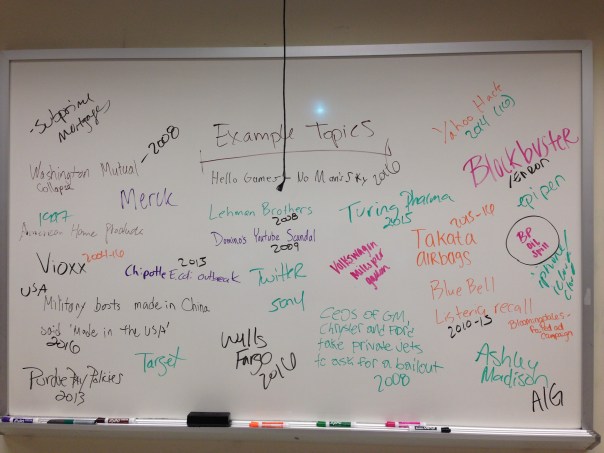 -Subprime
Mortgages
Yahoo Hack
2014 (16)
Example Topics
- 2008
Blockbuster
/ENRON
Washington Mutual
Collapse
Hello Games - No Man's Sky 2016
epi pen
Merck
Lehman Brothers
2008
Turing Pharma
2015
2015-16
Takata
airbags
BP
oil
spill
American Home Products
Domino's Youtube Scandal
2009
Volkswagen
Vioxx 2004-16
2015
Chipotle E.coli outbreak
Twitter
Sony
iphone/
Blue Bell
Listeria recall
2010-15
USA
Military boots made in China
said 'Made in the USA'
2016
CEOs of GM,
Chrysler and Ford
take private jets
to ask for a bailout
2008
Bloomingdales-
campaign
Wells
Fargo
2016
Target
Ashley
Madison
Purdue Pay Policies
2013
AIG